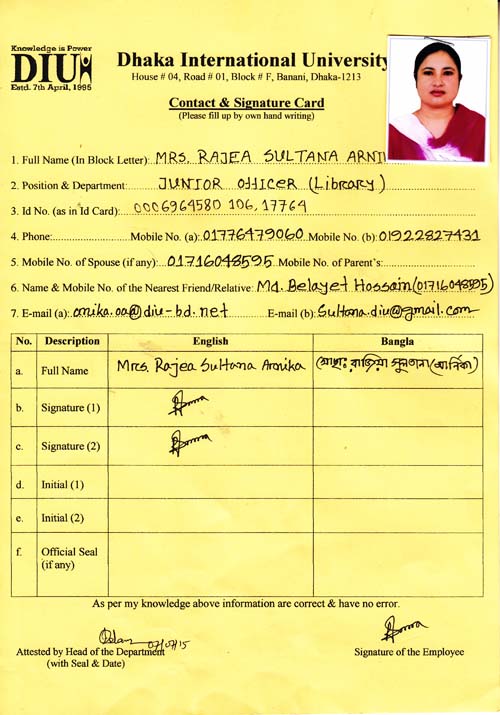 Knowledge is Power
DIU
Estd. 7th April, 1995
Dhaka International University
House # 04, Road # 01, Block # F, Banani, Dhaka-1213
Contact & Signature Card
(Please fill up by own hand writing)
1. Full Name (In Block Letter): MRS. RAJEA SULTANA ARNI
2. Position & Department: JUNIOR OFFICER (Library)
3. Id No. (as in Id Card): 0006964580 106, 17764
4. Phone: Mobile No. (a): 01776479060 Mobile No. (b): 01922827431
5. Mobile No. of Spouse (if any): 01716048595 Mobile No. of Parent's:
6. Name & Mobile No. of the Nearest Friend/Relative: Md. Belayet Hossain (01716048595)
7. E-mail (a): arnika.oa@diu-bd.net E-mail (b): Sultana.diu@gmail.com
No. Description English Bangla
a. Full Name Mrs. Rajea Sultana Arnika (মোছাঃ রাজিয়া সুলতানা (আর্নিকা)
b. Signature (1)
c. Signature (2)
d. Initial (1)
e. Initial (2)
f. Official Seal
(if any)
As per my knowledge above information are correct & have no error.
07/07/15
Attested by Head of the Department Signature of the Employee
(with Seal & Date)